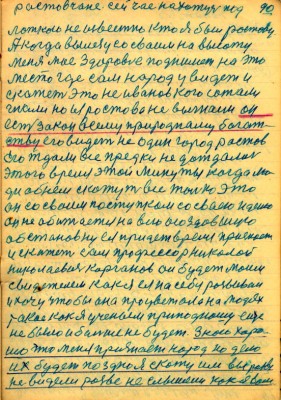 ростовчане сейчас находятся под 90
ложкою неизвестно кто я был ростову
А когда вылезу со своим на высоту
меня мое Здоровье поднимет на это
место где сам народ увидет и
скажет это не иванов кого
гнали но из ростова не выгнали он
есть закон всему природному богат-
ству его видет не один город ростов
его ждали все предки не дождались
этого время этой минуты когда лю-
ди об нем скажут все только это
он со своим поступком со своею идеею
он не обижается на всю создавшую
обстановку ему придет время приедет
и скажет сам профессор николай
николаевич карганов он будет моим
свидетелем как я ей на себе развивал
и хочу чтобы она процветала на людях
такая как я ученым природному еще
не было и больше не будет. Знаю хоро-
шо что меня признает народ но дело
их будет поздно я скажу им вы разве
не видели разве не слышали как я вам